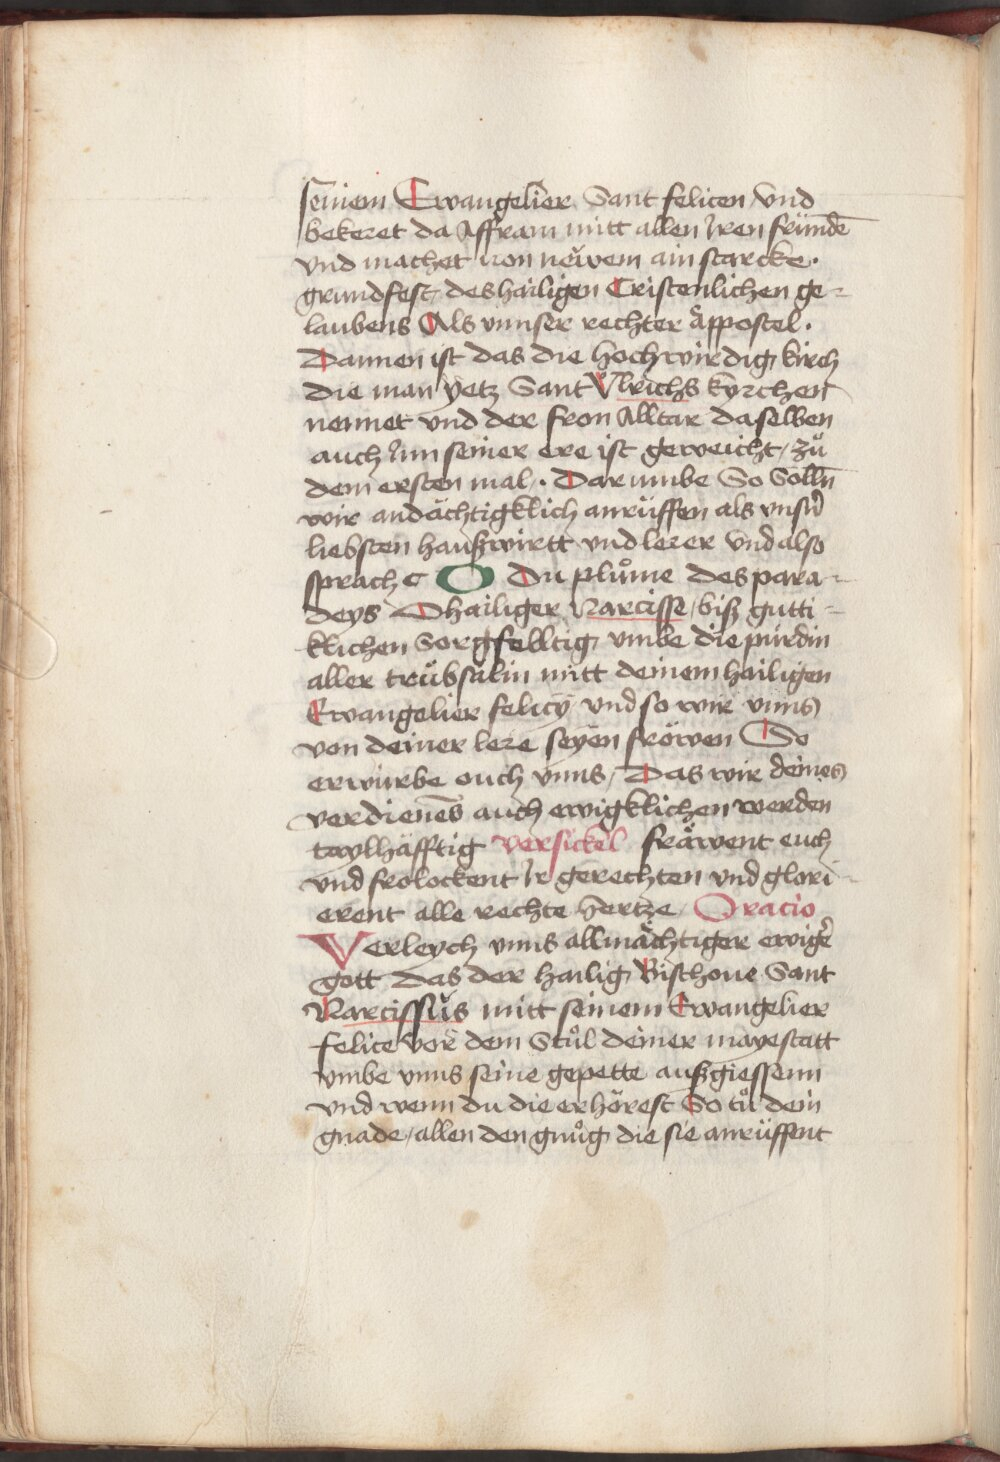 seinem Ewangelier Sant felicen vnd
bekeret da Affram mitt allen Iren fründē
vnd machet von neẅem ain starcke
grundfest des hailigen Cristenlichen ge-
laubens Als vnnser rechter Appostel.
Dannen ist das die hochwirdig kirch
die man yetz Sant Vlrichs kyrchen
nennet vnd der fron Alltar daselben
auch Inn seiner ere ist geweicht / zů
dem ersten mal. Darumbe So Sollñ
wir andächtigklich anrüffen als vnsñ
liebsten haußwirtt vnd lerer vnd also
sprach c O Du plůme des para-
deys O hailiger Narcisse / biß gutti-
klichen Sorgfelltig vmbe die pürdin
aller trübsalin mitt deinem hailigen
Ewangelier felicÿ vnd so wir vnns
von deiner lere seyen fröwen So
erwürbe ouch vnns / Das wir deines
verdienēs auch ewigklichen werden
taylhäfftig versickel fräwent euch
vnd frolockent Ir gerechten vnd glori-
erent alle rechte hertze / Oracio
Verleych vnns allmächtiger ewiger
gott das der hailig Bischoue Sant
Narcissus mitt seinem Ewangelier
felice vor dem Stůl deiner mayestatt
vmbe vnns seine gepette außgiessenn
vnd wenn du die erhörest So tů dein
gnade / allen den gnůg die sie anrüffent